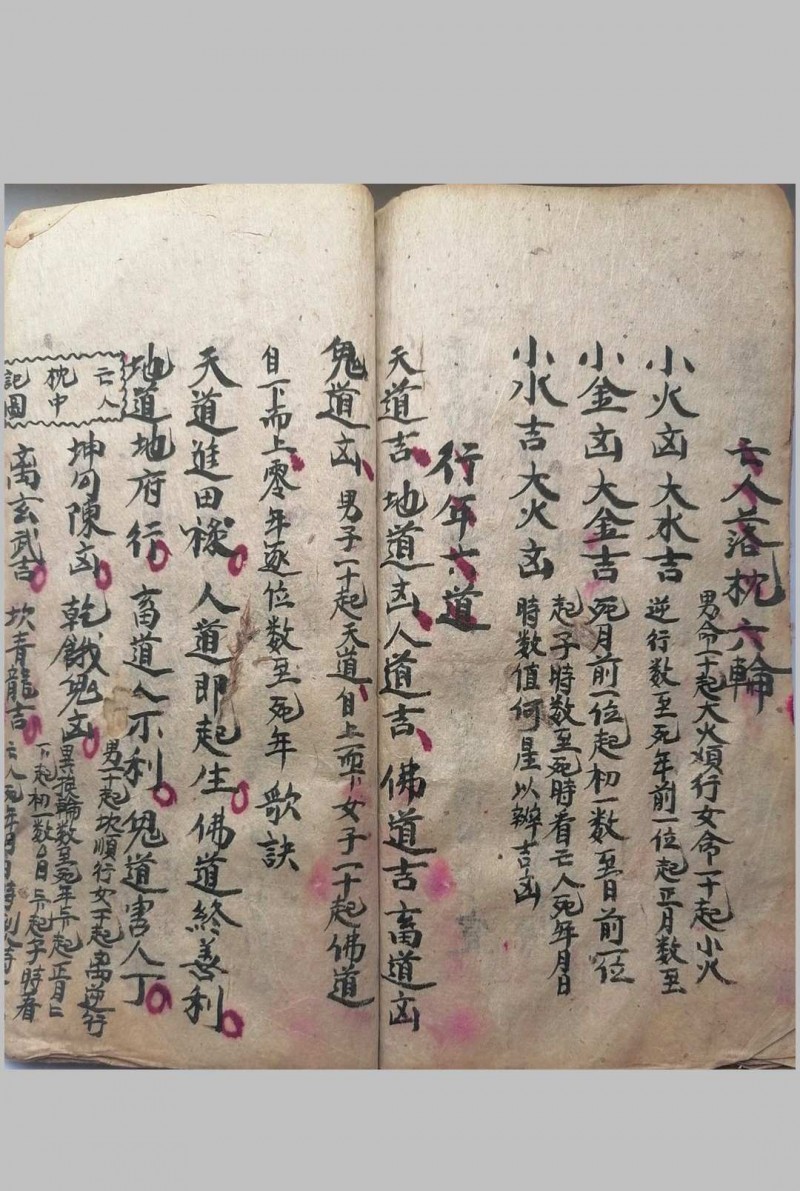 亡人落枕六輪
男命一十起大火順行女命一十起小火
小火凶 大水吉
逆行数至死年前一位起正月数至
小金凶 大金吉
死月前一位起初一数至日前一位
小水吉 大火凶
起子時数至死時看亡人死年月日
時数值何星以辨吉凶
行年六道
天道吉 地道凶 人道吉 佛道吉 畜道凶
鬼道凶 男子一十起天道自上而下女子一十起佛道
自下而上零年逐位数至死年 歌訣
天道進田 人道即起生 佛道終善利
地道地府行 畜道人不利 鬼道害人丁
亡人
枕中
記圖
坤勾陳凶 乾餓鬼凶
离玄武吉 坎青龍吉
男一十起坎順行女一十起离逆行
輪数至死年上起正月
下起初一数日上起子時看